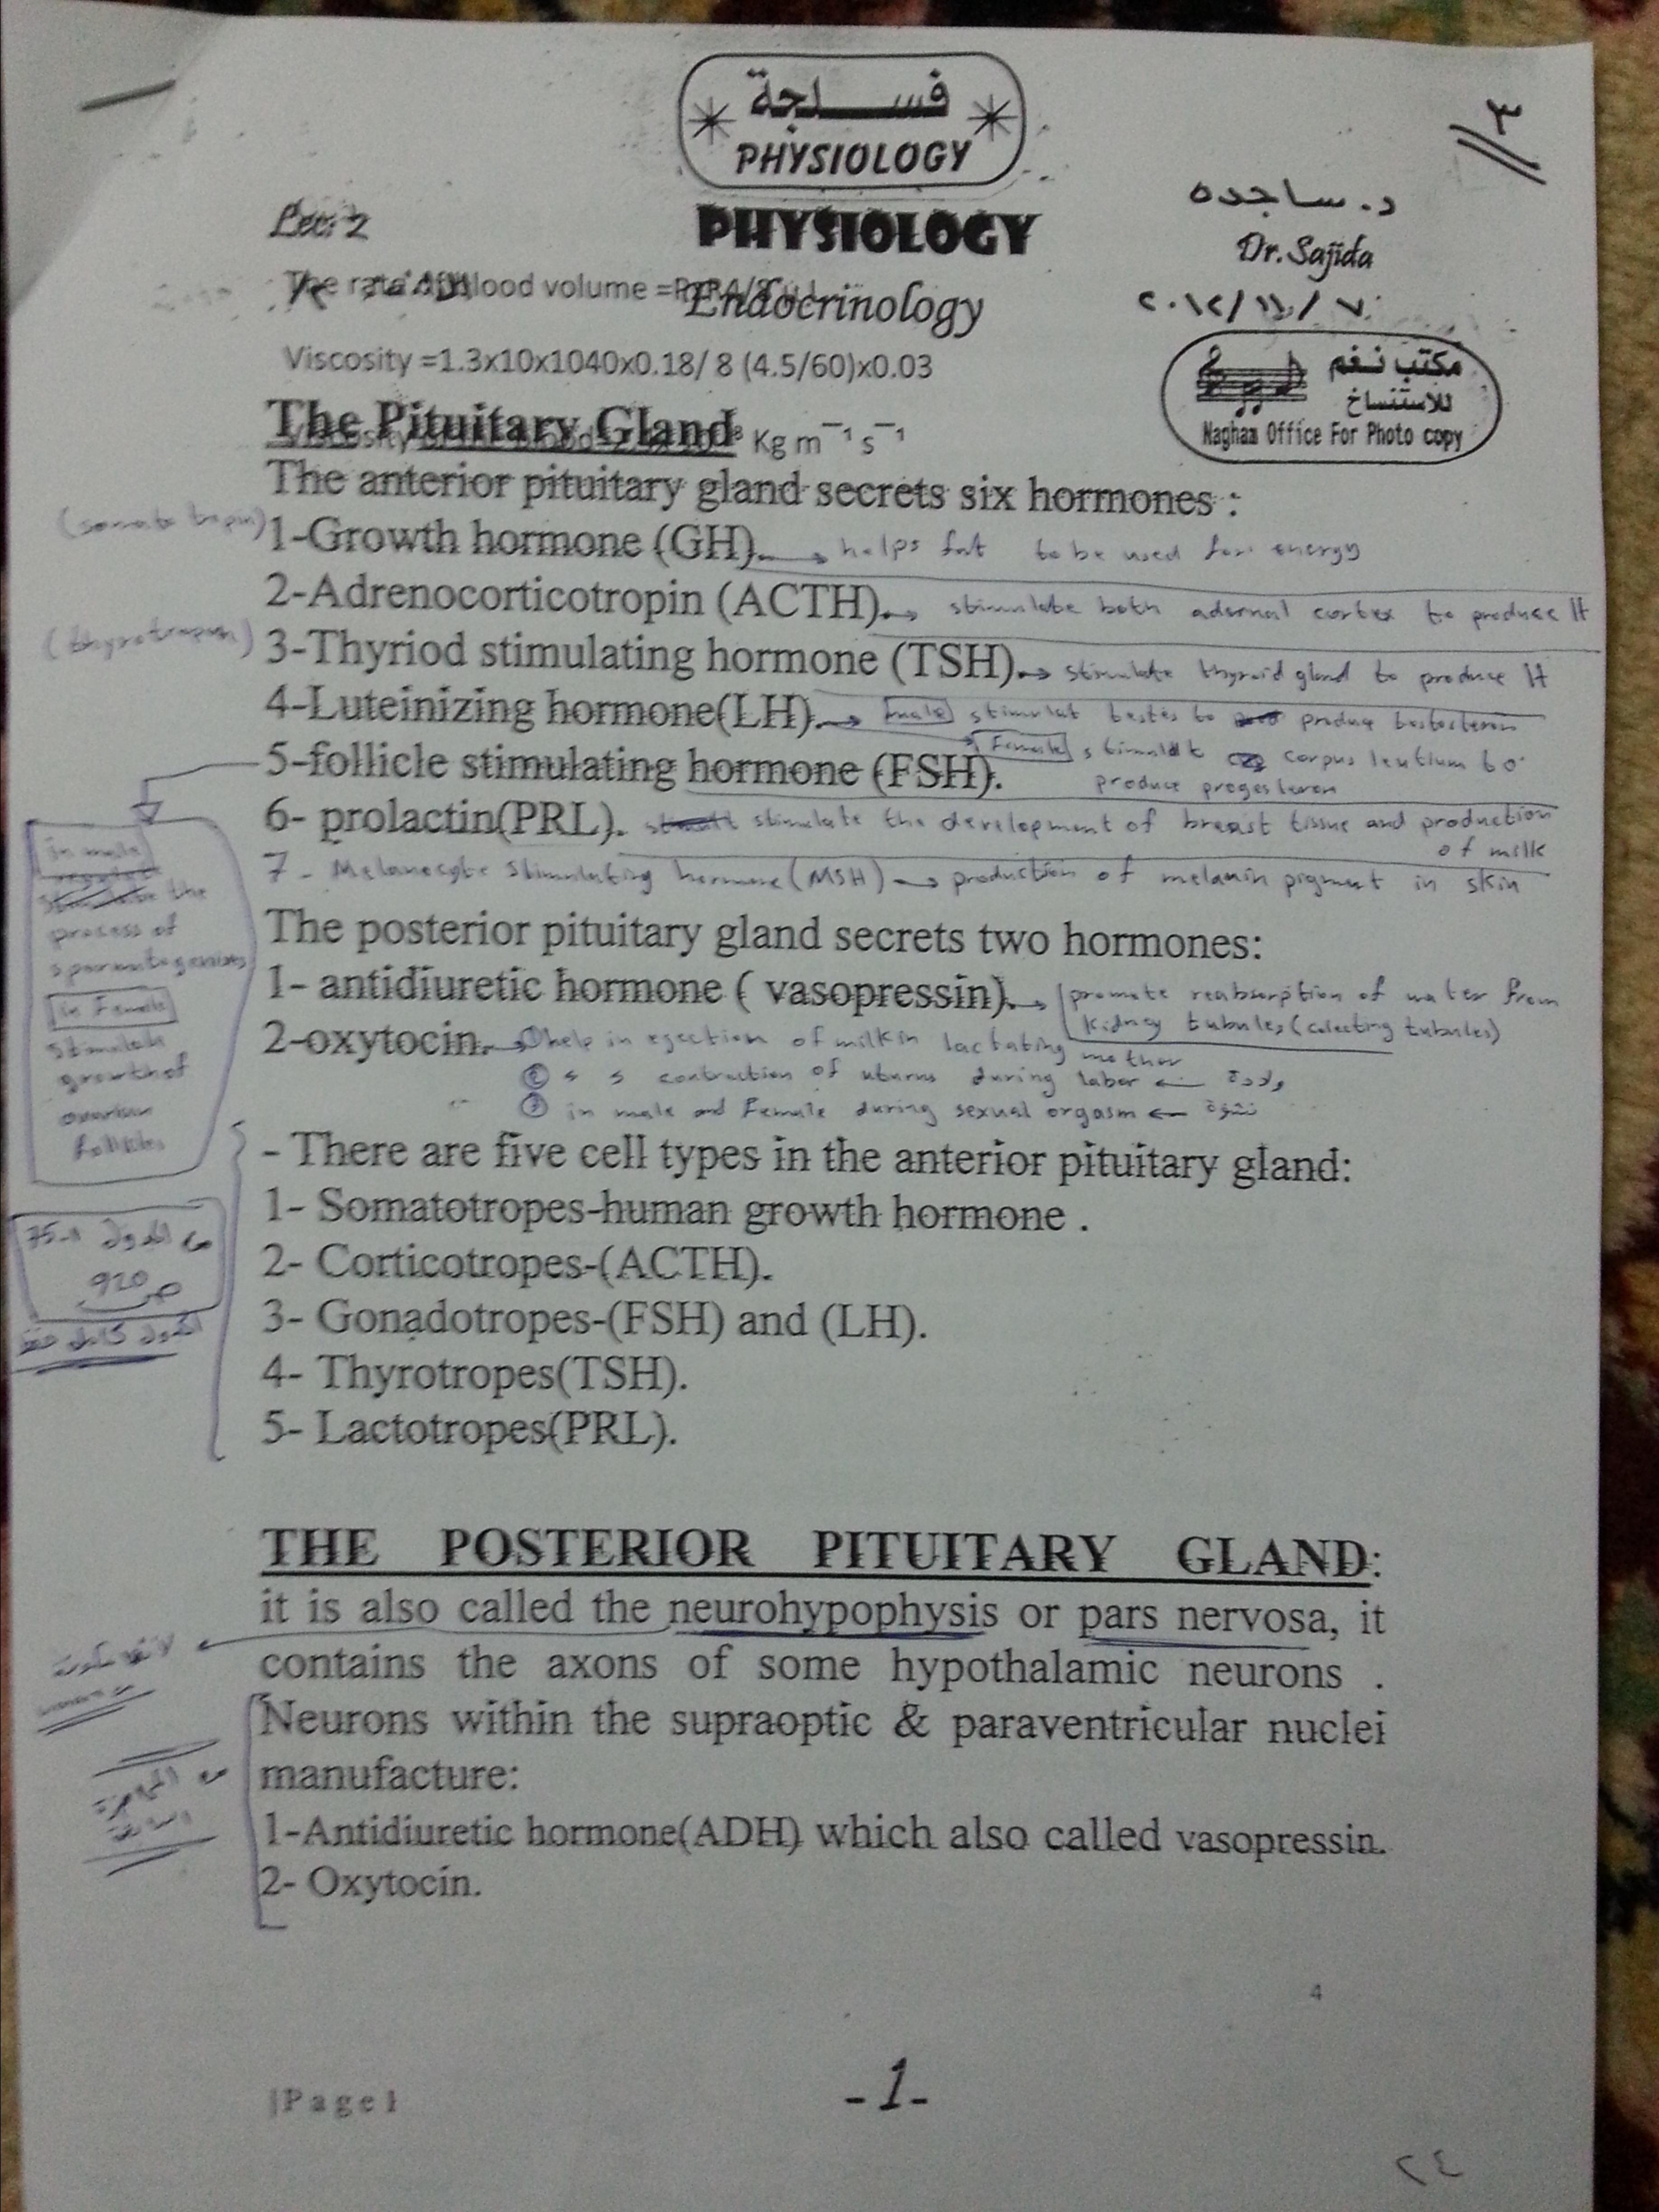 فسلجة
PHYSIOLOGY
٣
Lec: 2
PHYSIOLOGY
د. ساجده
Dr. Sajida
Endocrinology
٢٠١٢/١١/٧
Viscosity =1.3x10x1040x0.18/ 8 (4.5/60)x0.03
مكتب نغم
للاستنساخ
Nagham Office For Photo copy
The Pituitary Gland
Kg m⁻¹ s⁻¹
The anterior pituitary gland secrets six hormones :
1-Growth hormone (GH). → helps fat to be used for energy
2-Adrenocorticotropin (ACTH). → stimulate both adernal cortex to produce It
3-Thyriod stimulating hormone (TSH). → stimulate thyroid gland to produce It
4-Luteinizing hormone(LH). → male stimulat testes to produce testosteron
Female stimulat corpus leutium to
produce progesteron
5-follicle stimulating hormone (FSH).
in male
regulate
the
process of
spermatogenises
in Female
stimulate
growth of
ovarian
follicles
6- prolactin(PRL). stimulate the development of breast tissue and production
of milk
7 - Melanocyte stimulating hormone (MSH) → production of melanin pigment in skin
The posterior pituitary gland secrets two hormones:
1- antidiuretic hormone ( vasopressin). → promote reabsorption of water from
kidney tubules (colecting tubules)
2-oxytocin. → ① help in ejection of milk in lactating mother
② contraction of uturus during labor ← ولادة
③ in male and Female during sexual orgasm ← نشوة
- There are five cell types in the anterior pituitary gland:
1- Somatotropes-human growth hormone .
2- Corticotropes-(ACTH).
3- Gonadotropes-(FSH) and (LH).
4- Thyrotropes(TSH).
5- Lactotropes(PRL).
75-1
ص 920
THE POSTERIOR PITUITARY GLAND:
it is also called the neurohypophysis or pars nervosa, it
contains the axons of some hypothalamic neurons .
Neurons within the supraoptic & paraventricular nuclei
manufacture:
1-Antidiuretic hormone(ADH) which also called vasopressin.
2- Oxytocin.
4
|Page1
-1-
٢٤